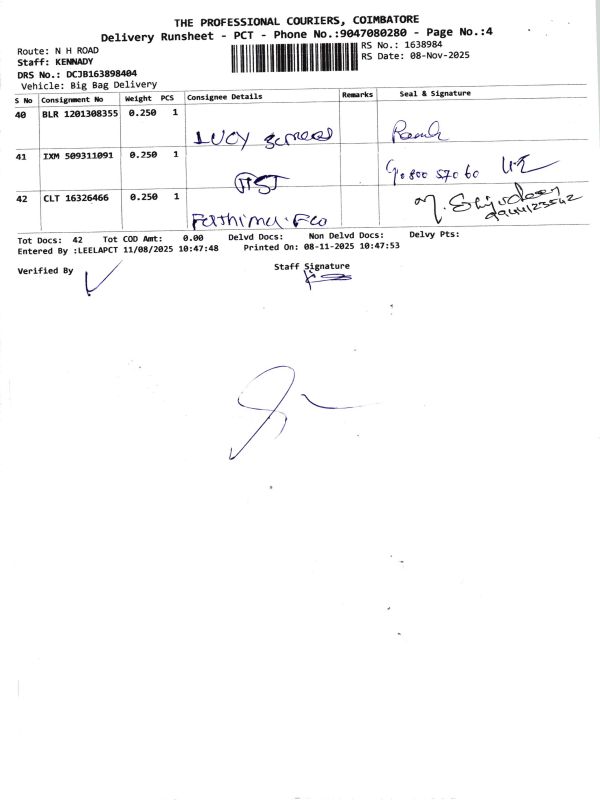 THE PROFESSIONAL COURIERS, COIMBATORE
Delivery Runsheet - PCT - Phone No.:9047080280 - Page No.:4
Route: N H ROAD
Staff: KENNADY
DRS No.: DCJB163898404
Vehicle: Big Bag Delivery
RS No.: 1638984
RS Date: 08-Nov-2025
S No Consignment No Weight PCS Consignee Details Remarks Seal & Signature
40 BLR 1201308355 0.250 1
LUCY
41 IXM 509311091 0.250 1
42 CLT 16326466 0.250 1
Tot Docs: 42 Tot COD Amt: 0.00 Delvd Docs: Non Delvd Docs: Delvy Pts:
Entered By :LEELAPCT 11/08/2025 10:47:48 Printed On: 08-11-2025 10:47:53
Verified By
Staff Signature